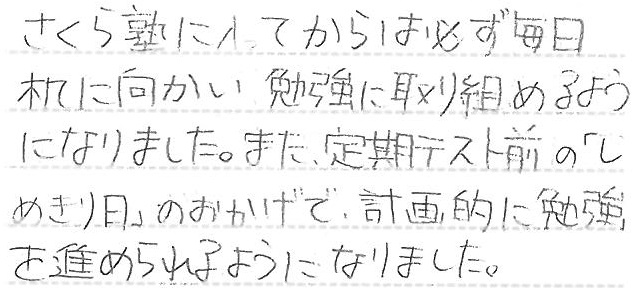 さくら塾に入ってからは必ず毎日
机に向かい勉強に取り組めるよう
になりました。また、定期テスト前の「し
めきり日」のおかげで、計画的に勉強
を進められるようになりました。